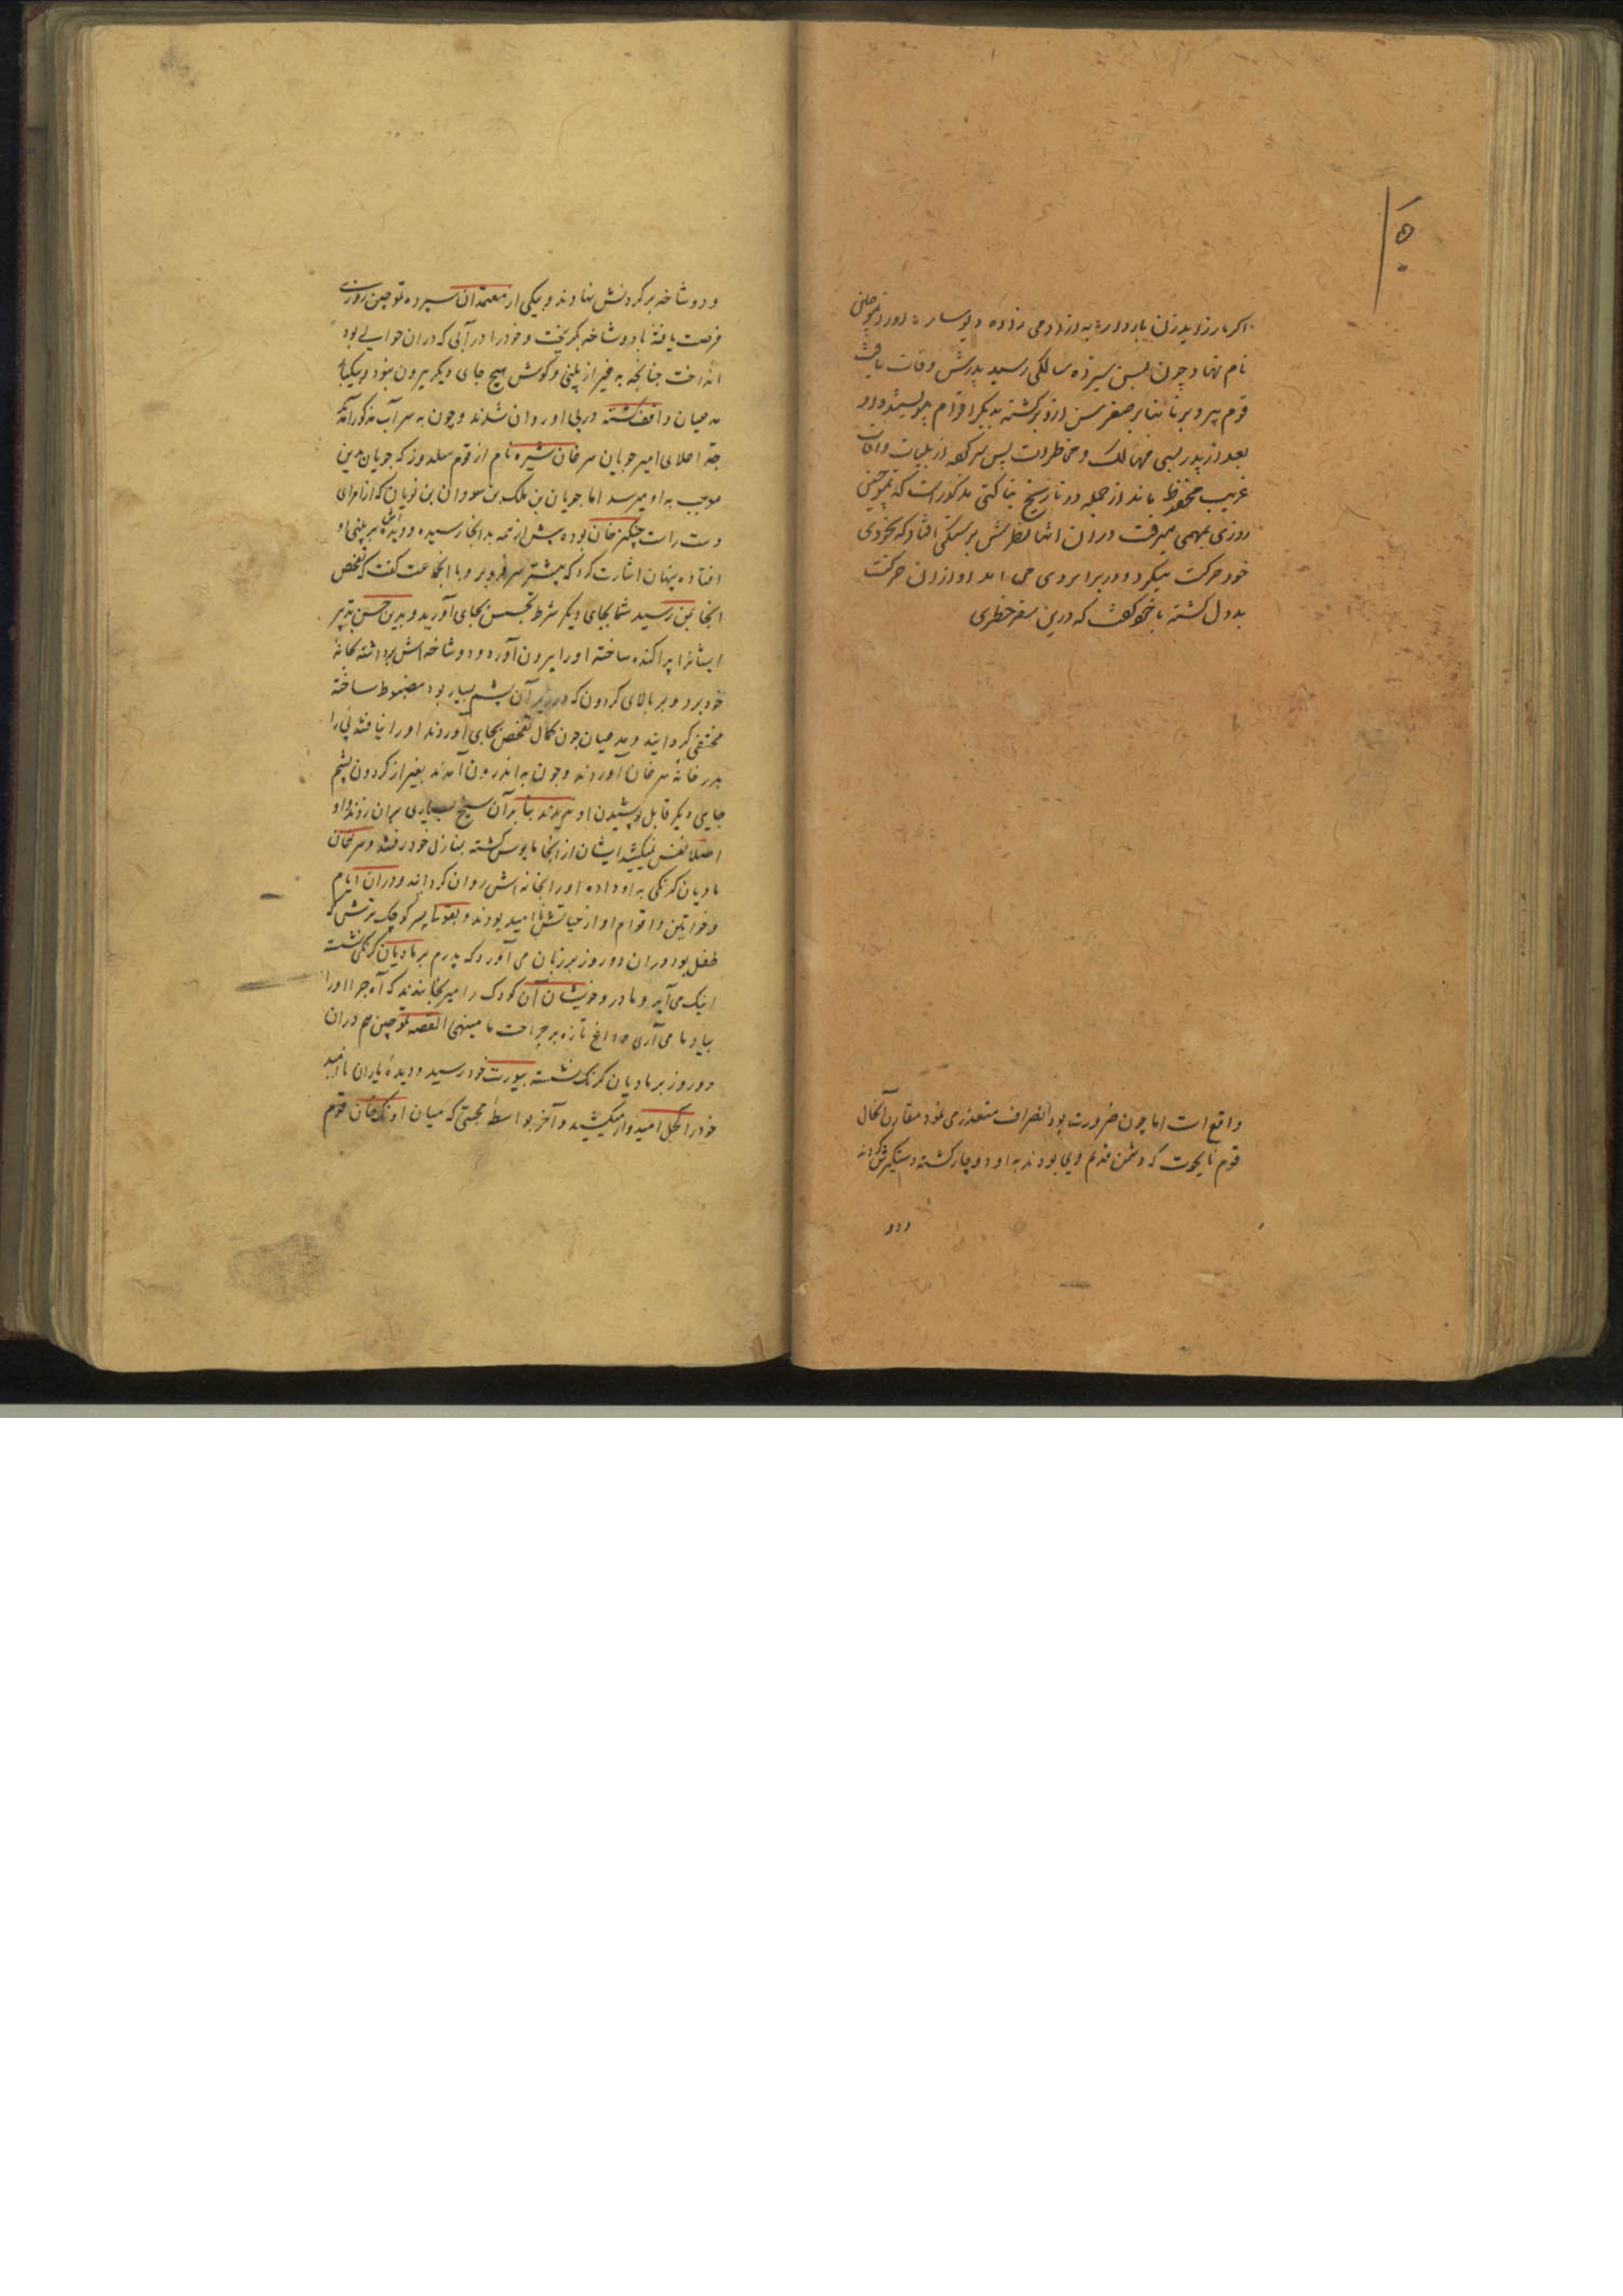 اکر مار زاید زن باردار به از آدمی زاده دیوسار او را تموچین
نام نهاد و چون بسن سیزده سالگی رسید پدرش وفات یافت
قوم پیر و برنا بنا بر صغر سن ازو برکشته بدیکر اقوام پیوستند و او
بعد از پدر بسی مهالک و مخاطرات پس سر کرد از بلیات و آفات
غریب محفوظ ماند از جمله در تاریخ بناکتی مذکور است که تموچین
روزی بمهمی میرفت در آن اثنا نظرش بر سنکی افتاد که بخودی
خود حرکت میکرد و در برابر وی می آمد او از آن حرکت
بددل کشته با خود کفت که درین سفر خطری
واقع است اما چون ضرورت بود انصراف متعذر می نمود مقارن آنحال
قوم تایجوت که دشمن قدیم وی بودند به او دوچار کشته دستکیرش کردند
و دو
و دو شاخه بر کردنش نهادند و بیکی از معتمدان سپرده تموچین روزی
فرصت یافته با دو شاخه بکریخت و خود را در آبی که در آن حوالی بود
انداخت چنانچه به غیر از بینی و کوش هیچ جای دیکر بیرون نبود
مدعیان واقف کشته در پی او روان شدند و چون به سر آب مذکور آمدند
جد اعلای امیر چوپان سرغان شیره نام از قوم سلدوز که چوپان بدین
موجب به او میرسد امیر چوپان بن ملک بن سودان بن نویان که از امرای
دست راست چنکیز خان بوده پیش از همه بدانجا رسیده و دیده اش بر بینی او
افتاده پنهان اشارت کرد که پیشتر سر فرو بر و با انجماعت کفت که تفحص
اینجا بمن رسید شما بجای دیکر شرط تجسس بجای آورید و بدین حسن تدبیر
ایشانرا پراکنده ساخته او را بیرون آورد و دو شاخه اش برداشته بخانه
خود برد و بر بالای کردون که در زیر آن پشم بسیار بود مضبوط ساخته
مختفی کردانید و مدعیان چون کمال تفحص بجای آوردند او را نیافتند پی را
بدر خانه سرغان آوردند و چون به اندرون آمدند بغیر از کردون پشم
جایی دیکر قابل پوشیدن او ندیدند بنا بر آن سیخ بسیاری بر آن زدند و او
اصلا نفس نمیکشید ایشان از آنجا مایوس کشته بمنازل خود رفتند و سرغان
مادیان کرنکی به او داده او را بخانه اش روان کردانید و در آن ایام
و خواتین و اقوام او از حیاتش نا امید بودند و پسر کوچک ترش که
طفل بود در آن دو روز بر زبان می آورد که پدرم بر مادیان کرنکی نشسته
اینک می آید و مادر و خویشان آن کودک را میرنجانیدند که آه چرا او را
بیاد ما می آری و داغ تازه بر جراحت ما مینهی القصه تموچین هم در آن
دو روز بر مادیان کرنک نشسته بیورت خود رسید و دیده یاران نا امید
خود را امیدوار میکشید و آخر بواسطه محبتی که میان اونک خان قوم